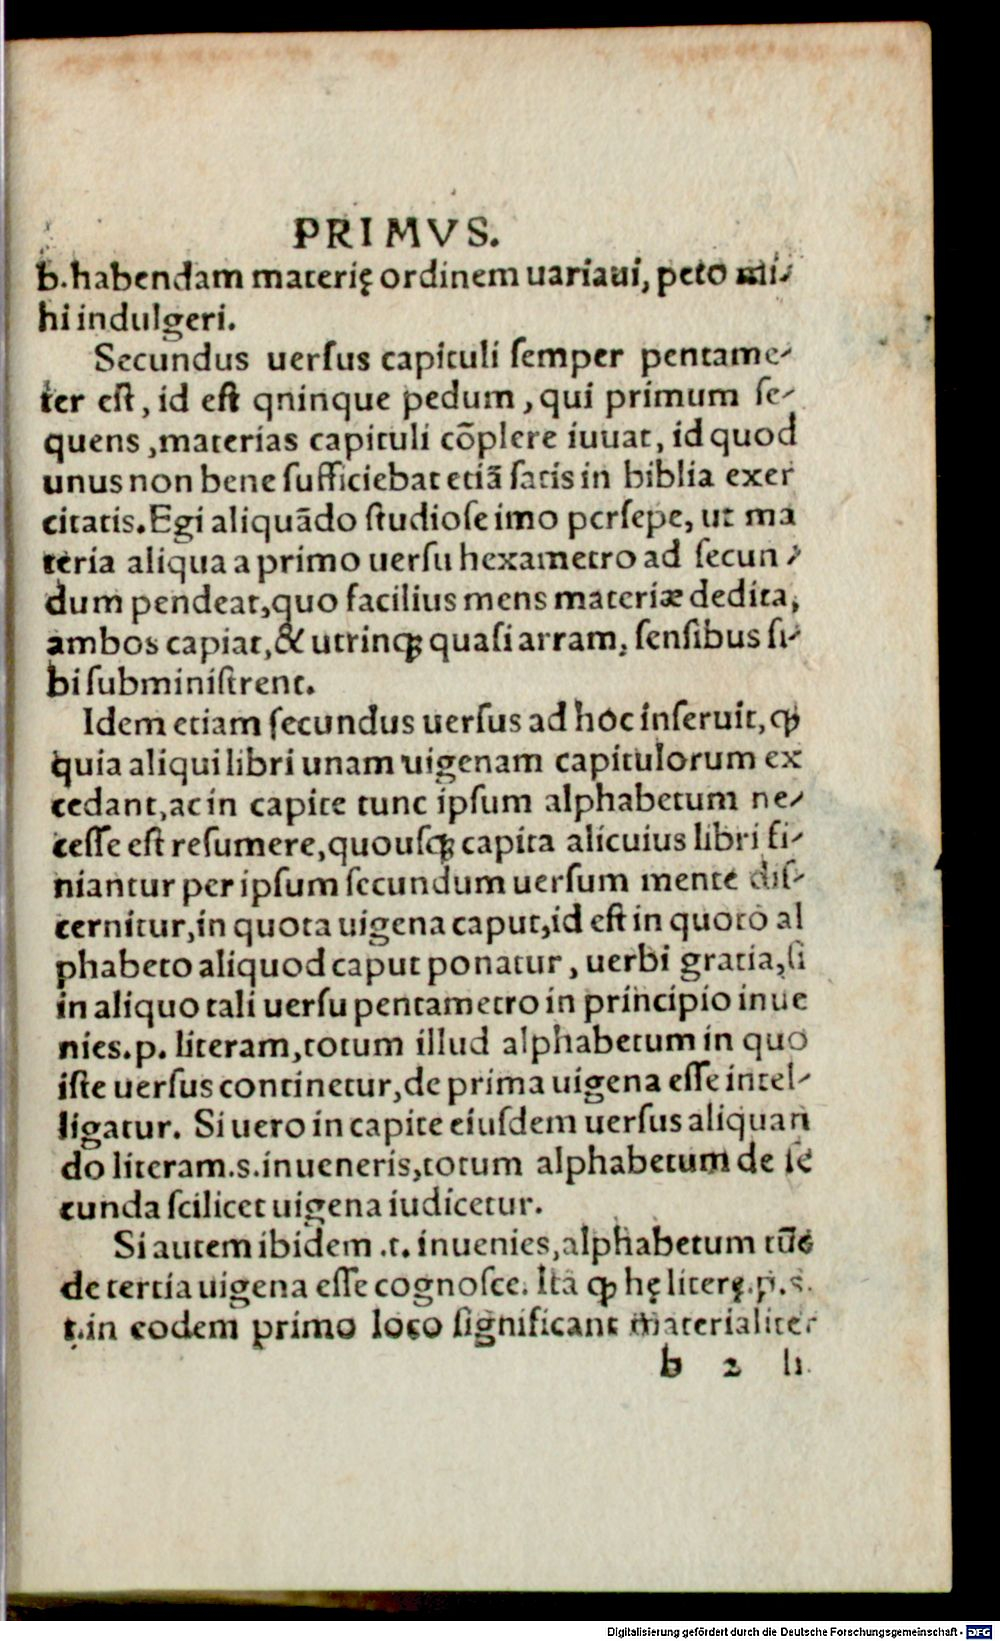 PRIMVS.
b.habendam materię ordinem uariaui, peto mi⸗
hi indulgeri.
Secundus uerſus capituli ſemper pentame⸗
ter eſt, id eſt qninque pedum, qui primum ſe⸗
quens, materias capituli cõplere iuuat, id quod
unus non bene ſufficiebat etiã ſatis in biblia exer
citatis. Egi aliquãdo ſtudioſe imo perſepe, ut ma
teria aliqua a primo uerſu hexametro ad ſecun⸗
dum pendeat, quo facilius mens materiæ dedita,
ambos capiat, & utrinqꝫ quaſi arram, ſenſibus ſi⸗
bi ſubminiſtrent.
Idem etiam ſecundus uerſus ad hoc inſeruit, ꝙ
quia aliqui libri unam uigenam capitulorum ex
cedant, ac in capite tunc ipſum alphabetum ne⸗
ceſſe eſt reſumere, quouſqꝫ capita alicuius libri fi⸗
niantur per ipſum ſecundum uerſum mente diſ⸗
cernitur, in quota uigena caput, id eſt in quoto al
phabeto aliquod caput ponatur, uerbi gratia, ſi
in aliquo tali uerſu pentametro in principio inue
nies.p. literam, totum illud alphabetum in quo
iſte uerſus continetur, de prima uigena eſſe intel⸗
ligatur. Si uero in capite eiuſdem uerſus aliquan
do literam.s.inueneris, totum alphabetum de ſe
cunda ſcilicet uigena iudicetur.
Si autem ibidem .t. inuenies, alphabetum tũc
de tertia uigena eſſe cognoſce. Ita ꝙ hę literę.p.s.
t.in eodem primo loco ſignificant materialiter
b 2 li
Digitalisierung gefördert durch die Deutsche Forschungsgemeinschaft - DFG